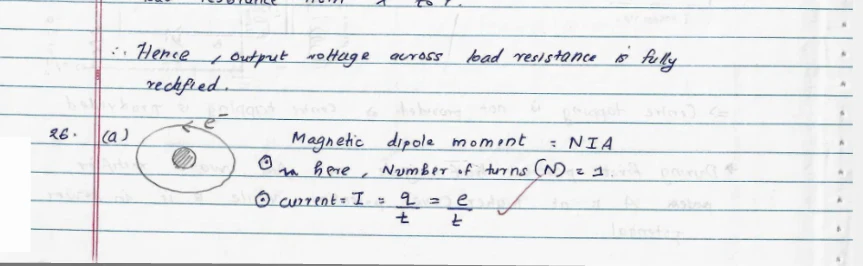 ∴ Hence , output voltage across load resistance is fully
rectified.
26. (a) e⁻
Magnetic dipole moment = NIA
⊙ In here, Number of turns (N) = 1.
⊙ current = I = q/t = e/t